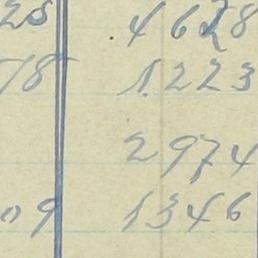 25 4628
78 1223
2974
09 1346